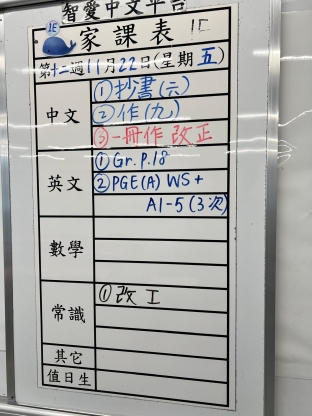 智愛中文平台
1E 家課表 1E
第十二週11月22日(星期五)
中文
①抄書(六)
②作(九)
③一冊作 改正
英文
①Gr.P.18
②PGE(A) WS+
A1-5(3次)
數學
常識
①改工
其它
值日生